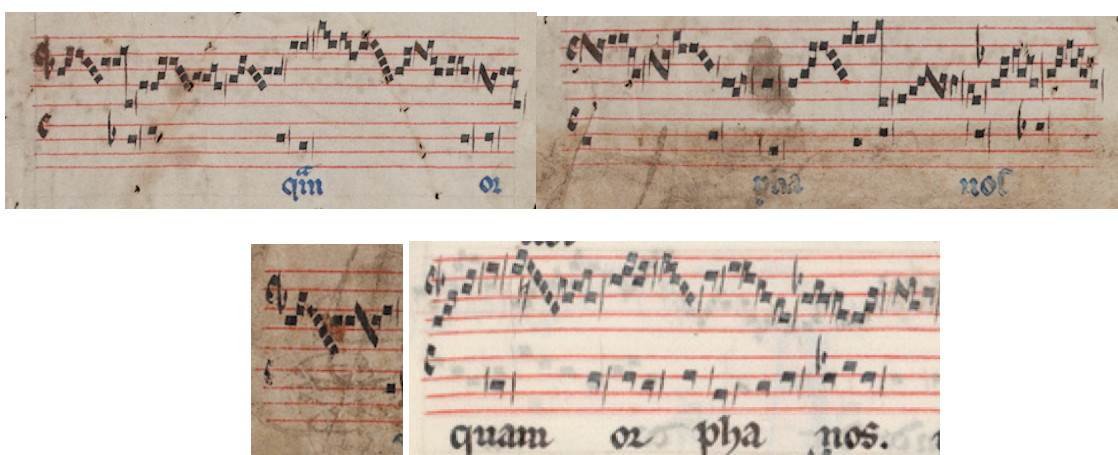 qm̄ or pha nos
quam or pha nos.